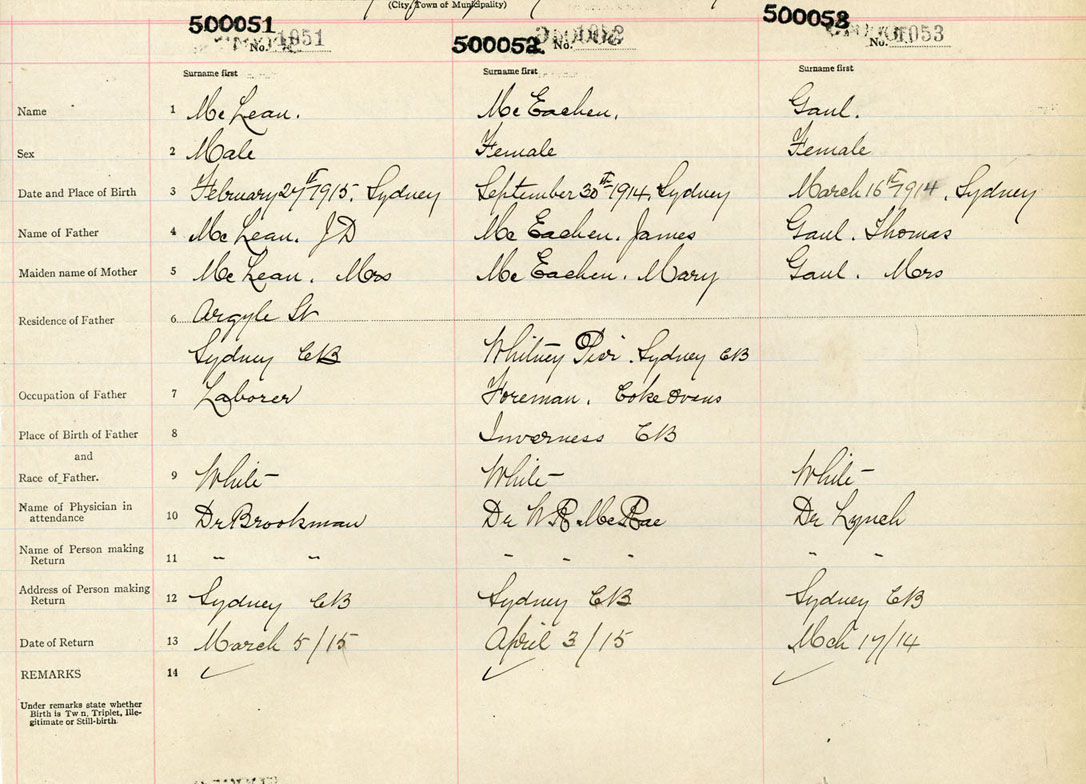 (City, Town of Municipality)
500051 No. 1051 500052 No. 500053 No. 1053
Surname first Surname first Surname first
Name 1 Mc Lean. Mc Eachen. Gaul.
Sex 2 Male Female Female
Date and Place of Birth 3 February 27th 1915. Sydney September 30th 1914. Sydney March 16th 1914. Sydney
Name of Father 4 Mc Lean. J D Mc Eachen. James Gaul. Thomas
Maiden name of Mother 5 Mc Lean. Mrs Mc Eachen. Mary Gaul. Mrs
Residence of Father 6 Argyle St
Sydney CB Whitney Pier. Sydney CB
Occupation of Father 7 Laborer Foreman. Coke Ovens
Place of Birth of Father 8 Inverness CB
and
Race of Father. 9 White White White
Name of Physician in
attendance 10 Dr Brookman Dr W R McRae Dr Lynch
Name of Person making
Return 11 " " " " " " "
Address of Person making
Return 12 Sydney CB Sydney CB Sydney CB
Date of Return 13 March 5/15 April 3/15 Mch 17/14
REMARKS 14
Under remarks state whether
Birth is Tw n, Triplet, Ille-
gitimate or Still-birth.